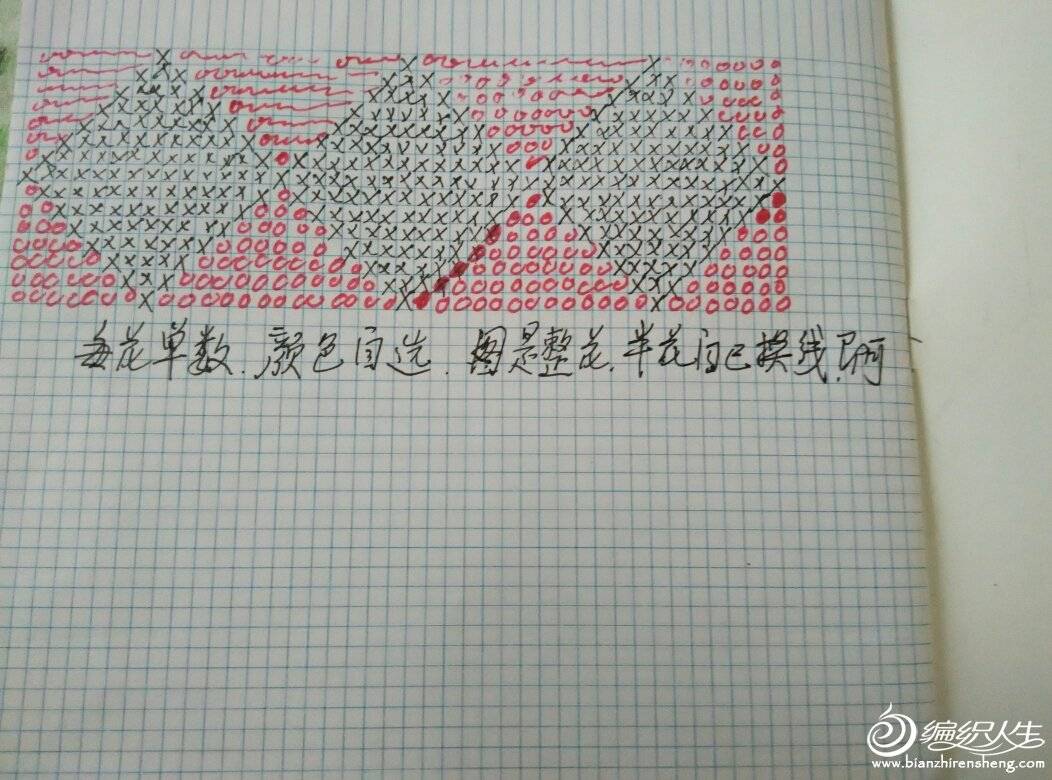 每花单数.颜色自选.图是整花.半花自己换线.即可
编织人生
www.bianzhirensheng.com